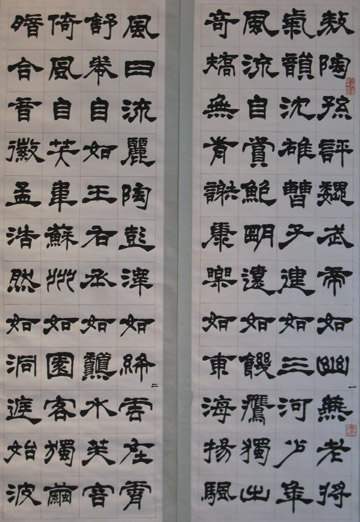 敖陶孫評魏武帝如幽燕老將
氣韻沈雄曹子建如三河少年
風流自賞鮑明遠如饑鷹獨出
奇矯無前謝康樂如東海揚颿
一
風日流麗陶彭澤如絳雲在霄
舒卷自如王右丞如龝水芙容
倚風自笑韋蘇州如園客獨繭
暗合音徽孟浩然如洞庭始波
二